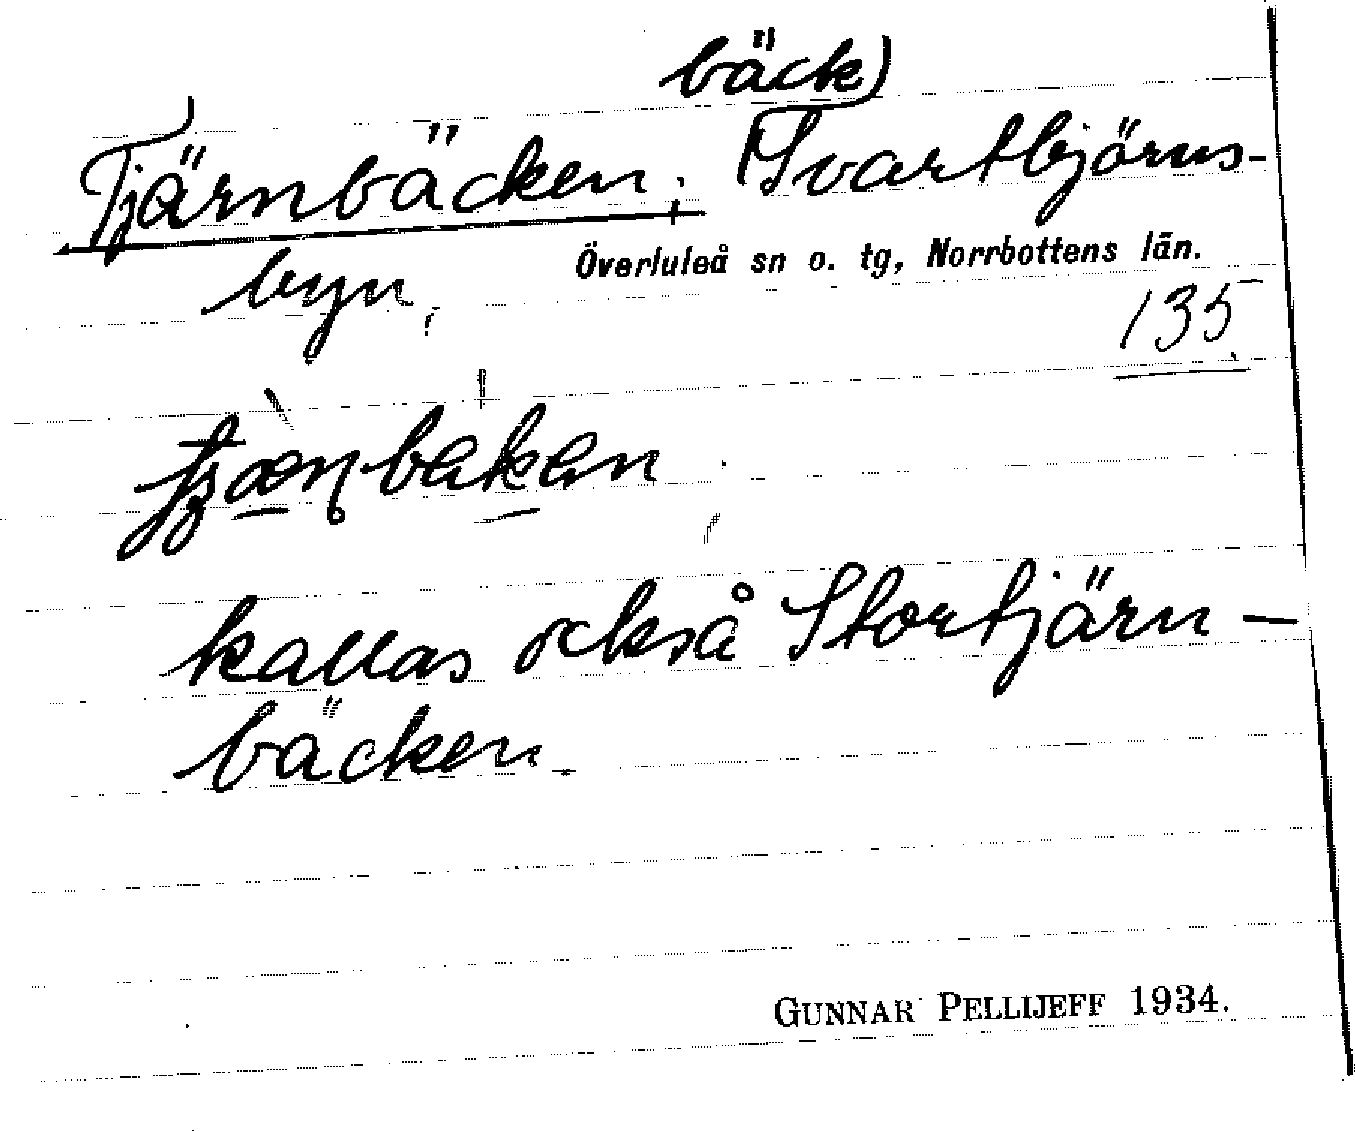 bäck)
Tjärnbäcken; Svartbjörns-
byn,
Överluleå sn o. tg, Norrbottens län.
135
kallas också Stortjärn-
bäcken
GUNNAR PELLIJEFF 1934.